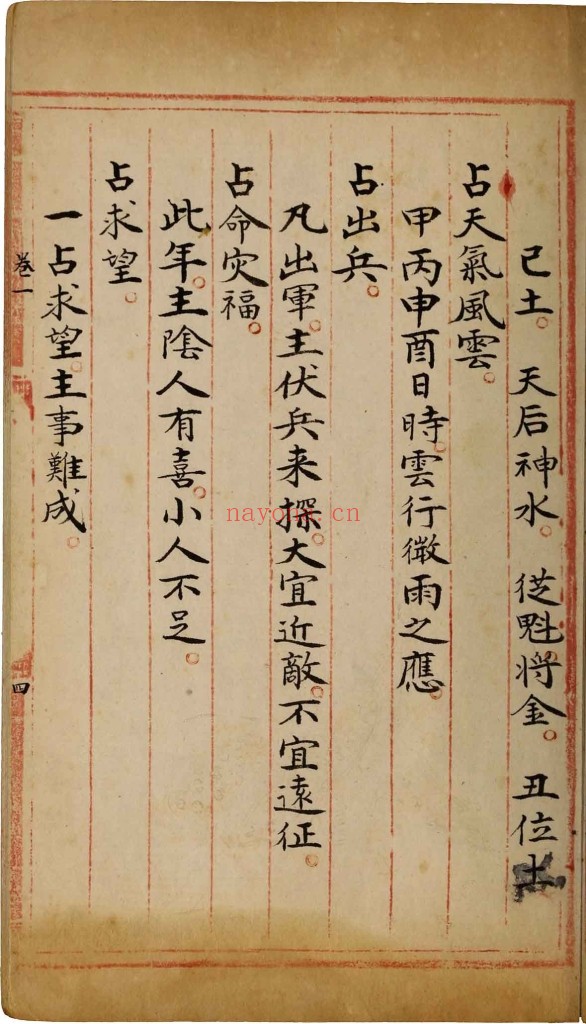 己土。　天后神水。　從魁将金。　丑位土
占天氣風雲。
甲丙申酉日時。雲行微雨之應。
占出兵。
凡出軍。主伏兵来探。大宜近敵。不宜遠征。
占命灾福。
此年。主陰人有喜。小人不足。
占求望。
一占求望。主事難成。
卷一
四
nayona.cn